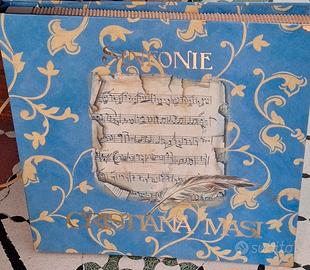 SINFONIE
CRISTIANA MASI
subito.it